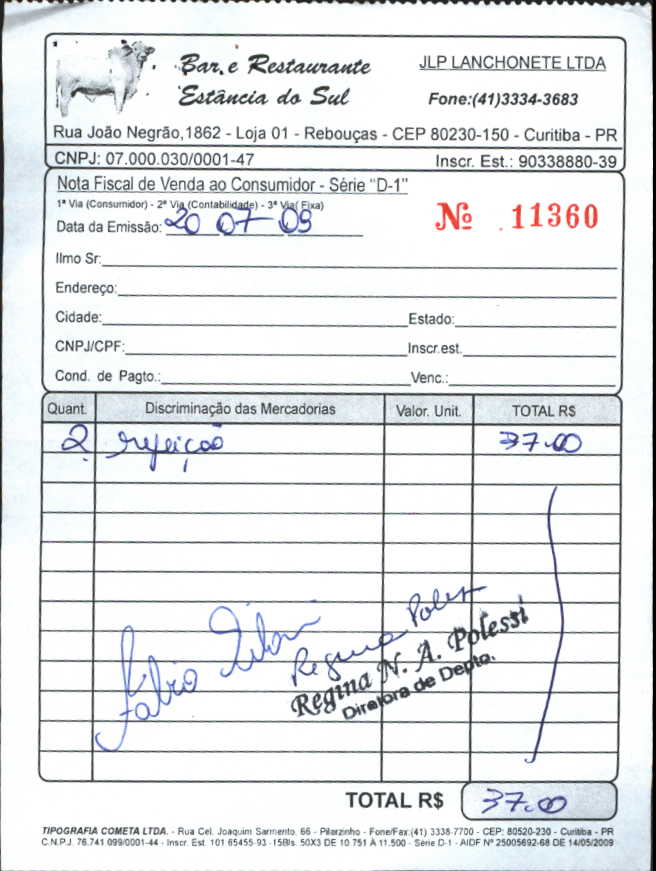 Bar e Restaurante
Estância do Sul
JLP LANCHONETE LTDA
Fone:(41)3334-3683
Rua João Negrão,1862 - Loja 01 - Rebouças - CEP 80230-150 - Curitiba - PR
CNPJ: 07.000.030/0001-47 Inscr. Est.: 90338880-39
Nota Fiscal de Venda ao Consumidor - Série "D-1"
1ª Via (Consumidor) - 2ª Via (Contabilidade) - 3ª Via( Fixa)
Data da Emissão: 20 07 09
Nº 11360
Ilmo Sr:
Endereço:
Cidade: Estado:
CNPJ/CPF: Inscr.est.
Cond. de Pagto.: Venc.:
Quant. Discriminação das Mercadorias Valor. Unit. TOTAL R$
2 refeição 37.00
Fabio
Regina Poless
Regina N. A. Polessi
Diretora de Depto.
TOTAL R$ 37.00
TIPOGRAFIA COMETA LTDA. - Rua Cel. Joaquim Sarmento, 66 - Pilarzinho - Fone/Fax:(41) 3338-7700 - CEP: 80520-230 - Curitiba - PR
C.N.P.J. 76.741.099/0001-44 - Inscr. Est. 101 65455-93 - 15Bls. 50X3 DE 10.751 À 11.500 - Série D-1 - AIDF Nº 25005692-68 DE 14/05/2009